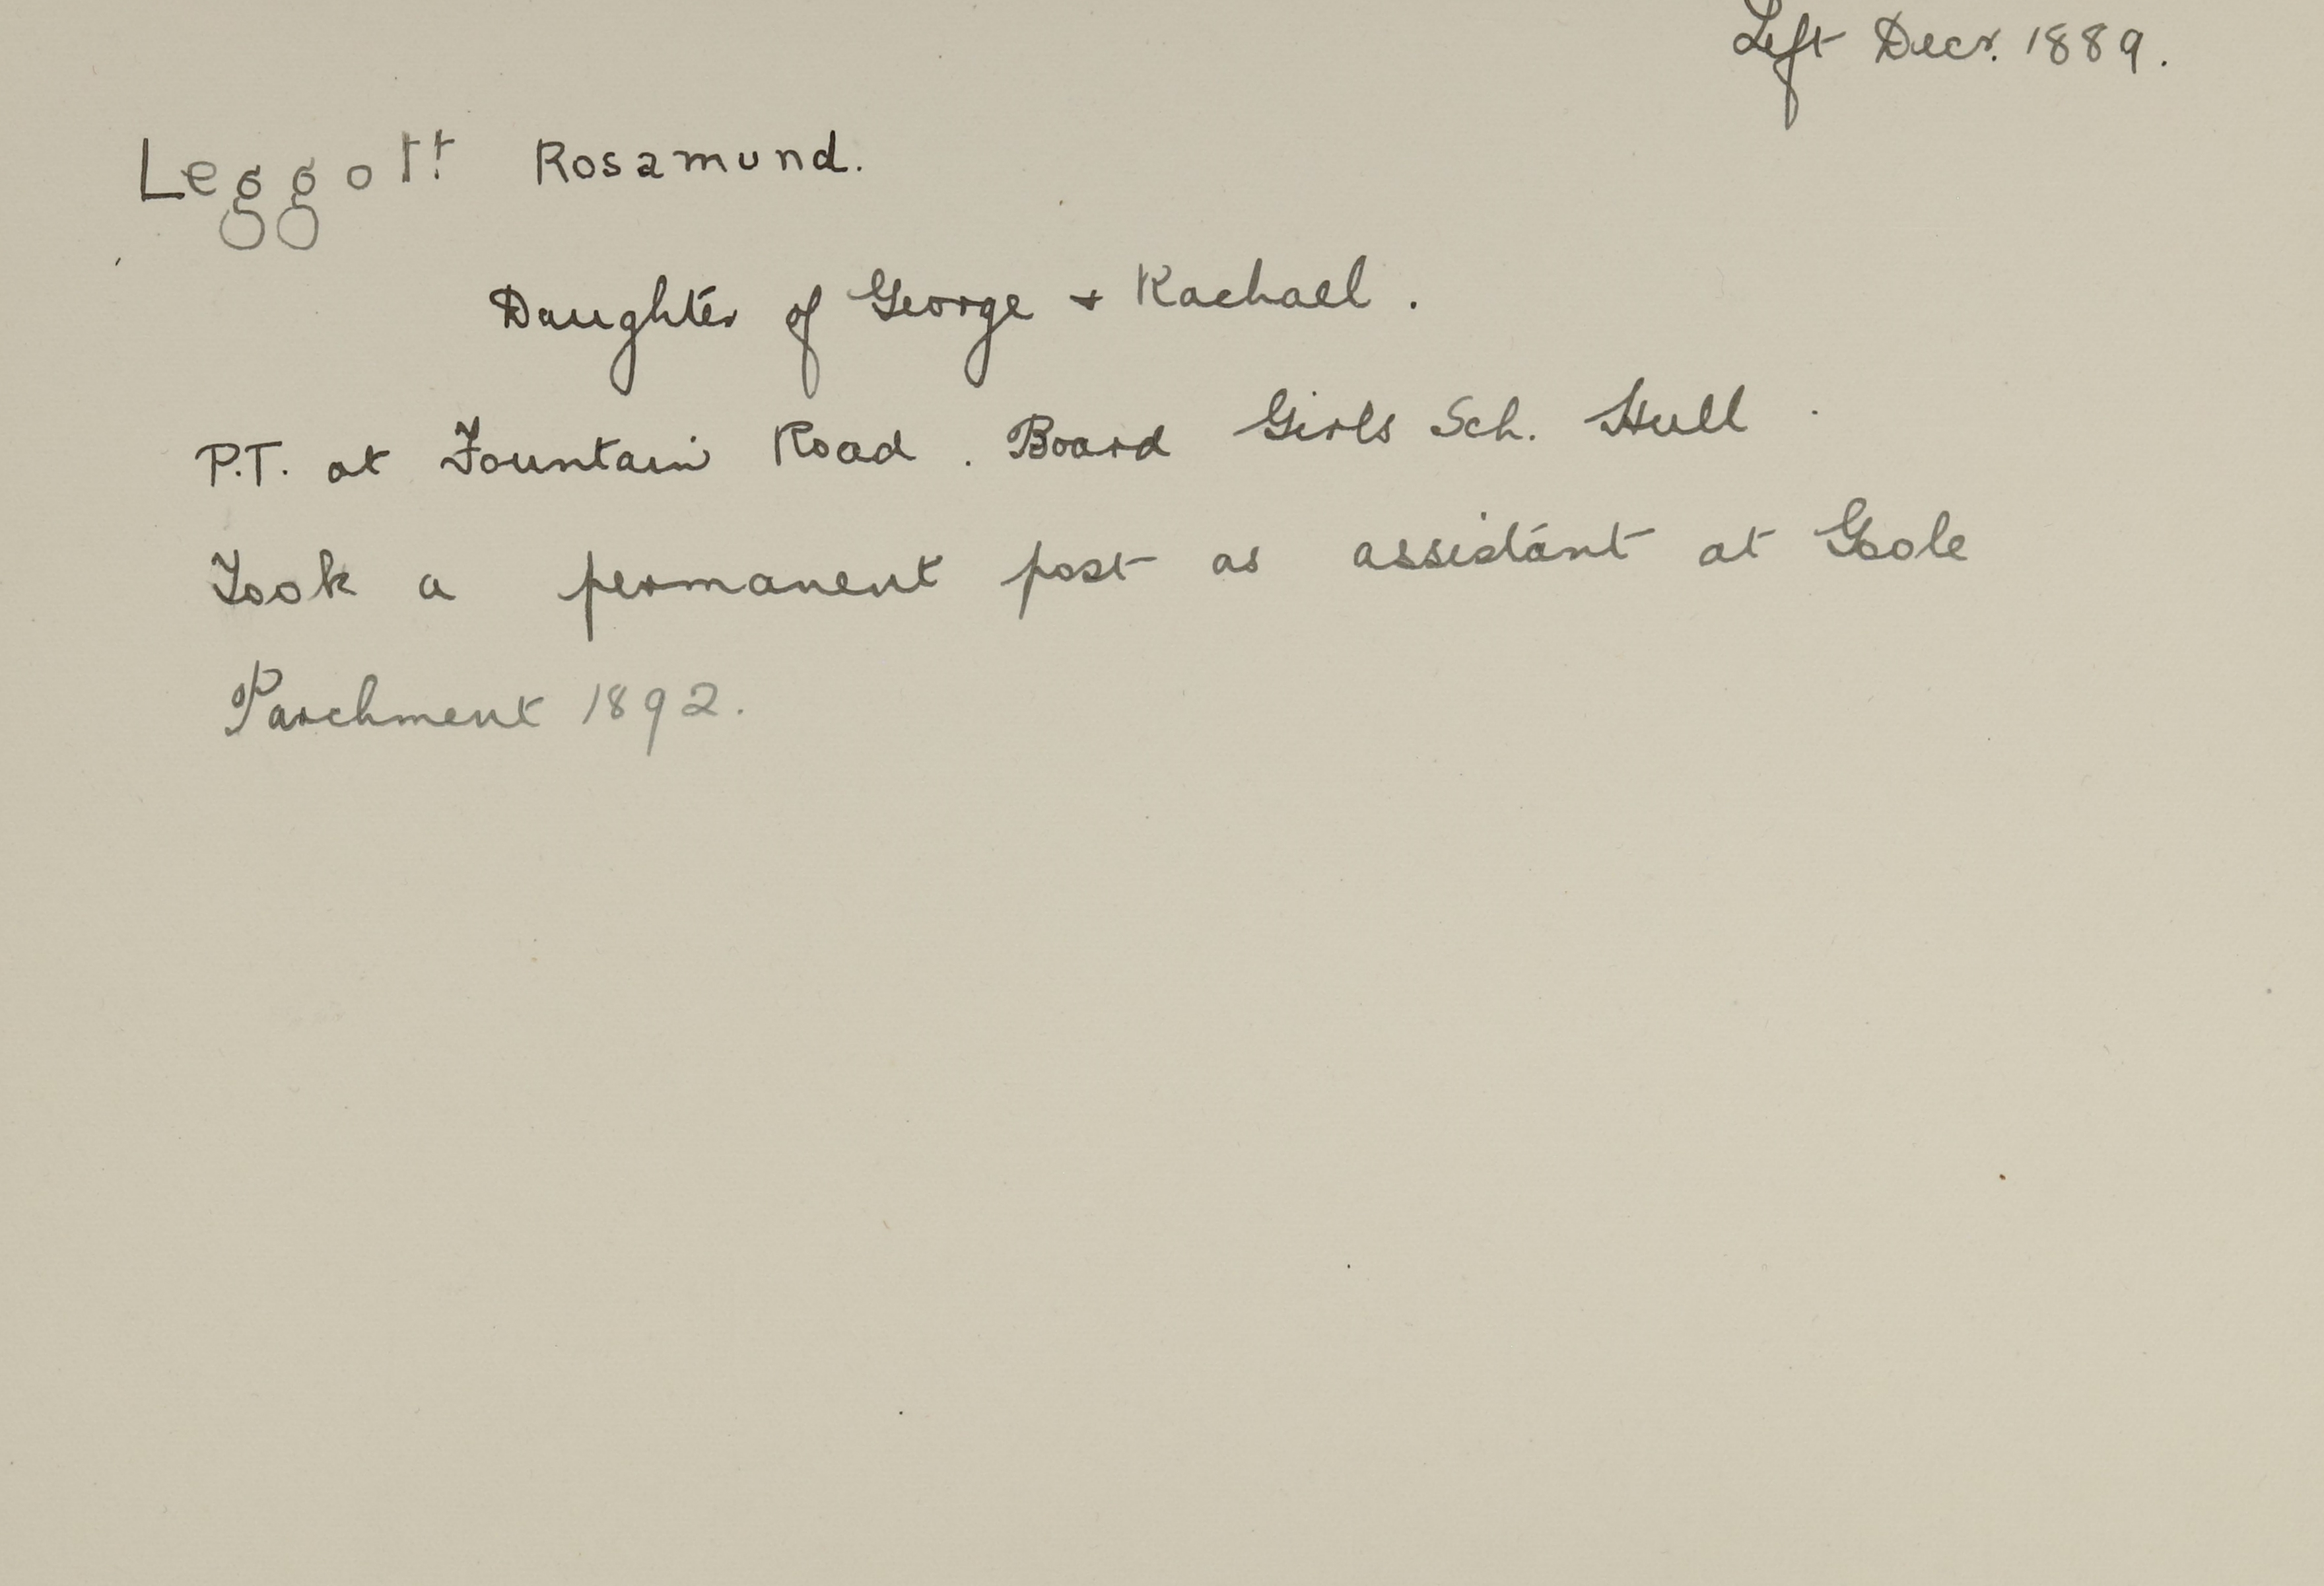 Left Decr. 1889.
Leggott Rosamund.
Daughter of George + Rachael.
P.T. at Fountain Road. Board Girls Sch. Hull.
Took a permanent post as assistant at Goole
Parchment 1892.